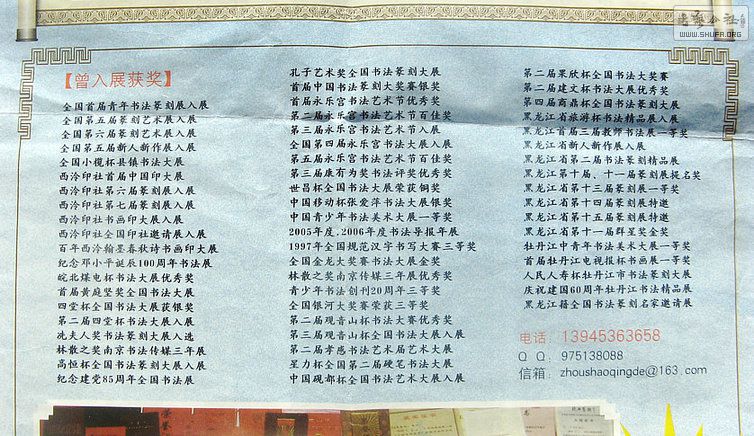 【曾入展获奖】
全国首届青年书法篆刻展入展
全国第五届篆刻艺术展入展
全国第六届篆刻艺术展入展
全国第五届新人新作展入展
全国小榄杯县镇书法大展
西泠印社首届中国印大展
西泠印社第六届篆刻展入展
西泠印社第七届篆刻展入展
西泠印社书画印大展入展
西泠印社全国印社邀请展入展
百年西泠翰墨春秋诗书画印大展
纪念邓小平诞辰100周年书法展
皖北煤电杯书法大展优秀奖
首届黄庭坚奖全国书法大展
四堂杯全国书法大展获银奖
第二届四堂杯书法大展入展
冼夫人奖书法篆刻大展入选
林散之奖南京书法传媒三年展
高恒杯全国书法篆刻大展入展
纪念建党85周年全国书法展
孔子艺术奖全国书法篆刻大展
首届中国书法篆刻大奖赛银奖
首届永乐宫书法艺术节优秀奖
第二届永乐宫书法艺术节百佳奖
第三届永乐宫书法艺术节入展
全国第四届永乐宫书法大展入展
第五届永乐宫书法艺术节百佳奖
第三届康有为奖书法评奖优秀奖
世昌杯全国书法大展荣获铜奖
中国移动杯张爱萍书法大展银奖
中国青少年书法美术大展一等奖
2005年度,2006年度书法导报年展
1997年全国规范汉字书写大赛三等奖
全国金龙大奖赛书法大展金奖
林散之奖南京传媒三年展优秀奖
青少年书法创刊20周年三等奖
全国银河大奖赛荣获三等奖
第二届观音山杯书法大赛优秀奖
第三届观音山杯书法大展入展
第二届孝感书法艺术届艺术大展
星力杯全国第二届硬笔书法大展
中国砚都杯全国书法大展入展
第二届果欣杯全国书法大奖赛
第二届建文杯书法大展优秀奖
第四届商鼎杯全国书法篆刻大展
黑龙江省旅游杯书法精品展入展
黑龙江省首届三届教师书法展一等奖
黑龙江省新人新作展入展
黑龙江省第二届书法篆刻精品展
黑龙江省第十届、十一届篆刻展提名奖
黑龙江省第十三届篆刻展一等奖
黑龙江省第十四届篆刻展特邀
黑龙江省第十五届篆刻展特邀
黑龙江省第十一届群星奖金奖
牡丹江中青年书法美术大展一等奖
首届牡丹江电视报杯书画展一等奖
人民人寿杯牡丹江市书法篆刻大展
庆祝建国60周年牡丹江书法精品展
黑龙江籍全国书法篆刻名家邀请展
电话: 13945363658
Q Q: 975138088
信箱: zhoushaoqingde@163.com
WWW.SHUFA.ORG